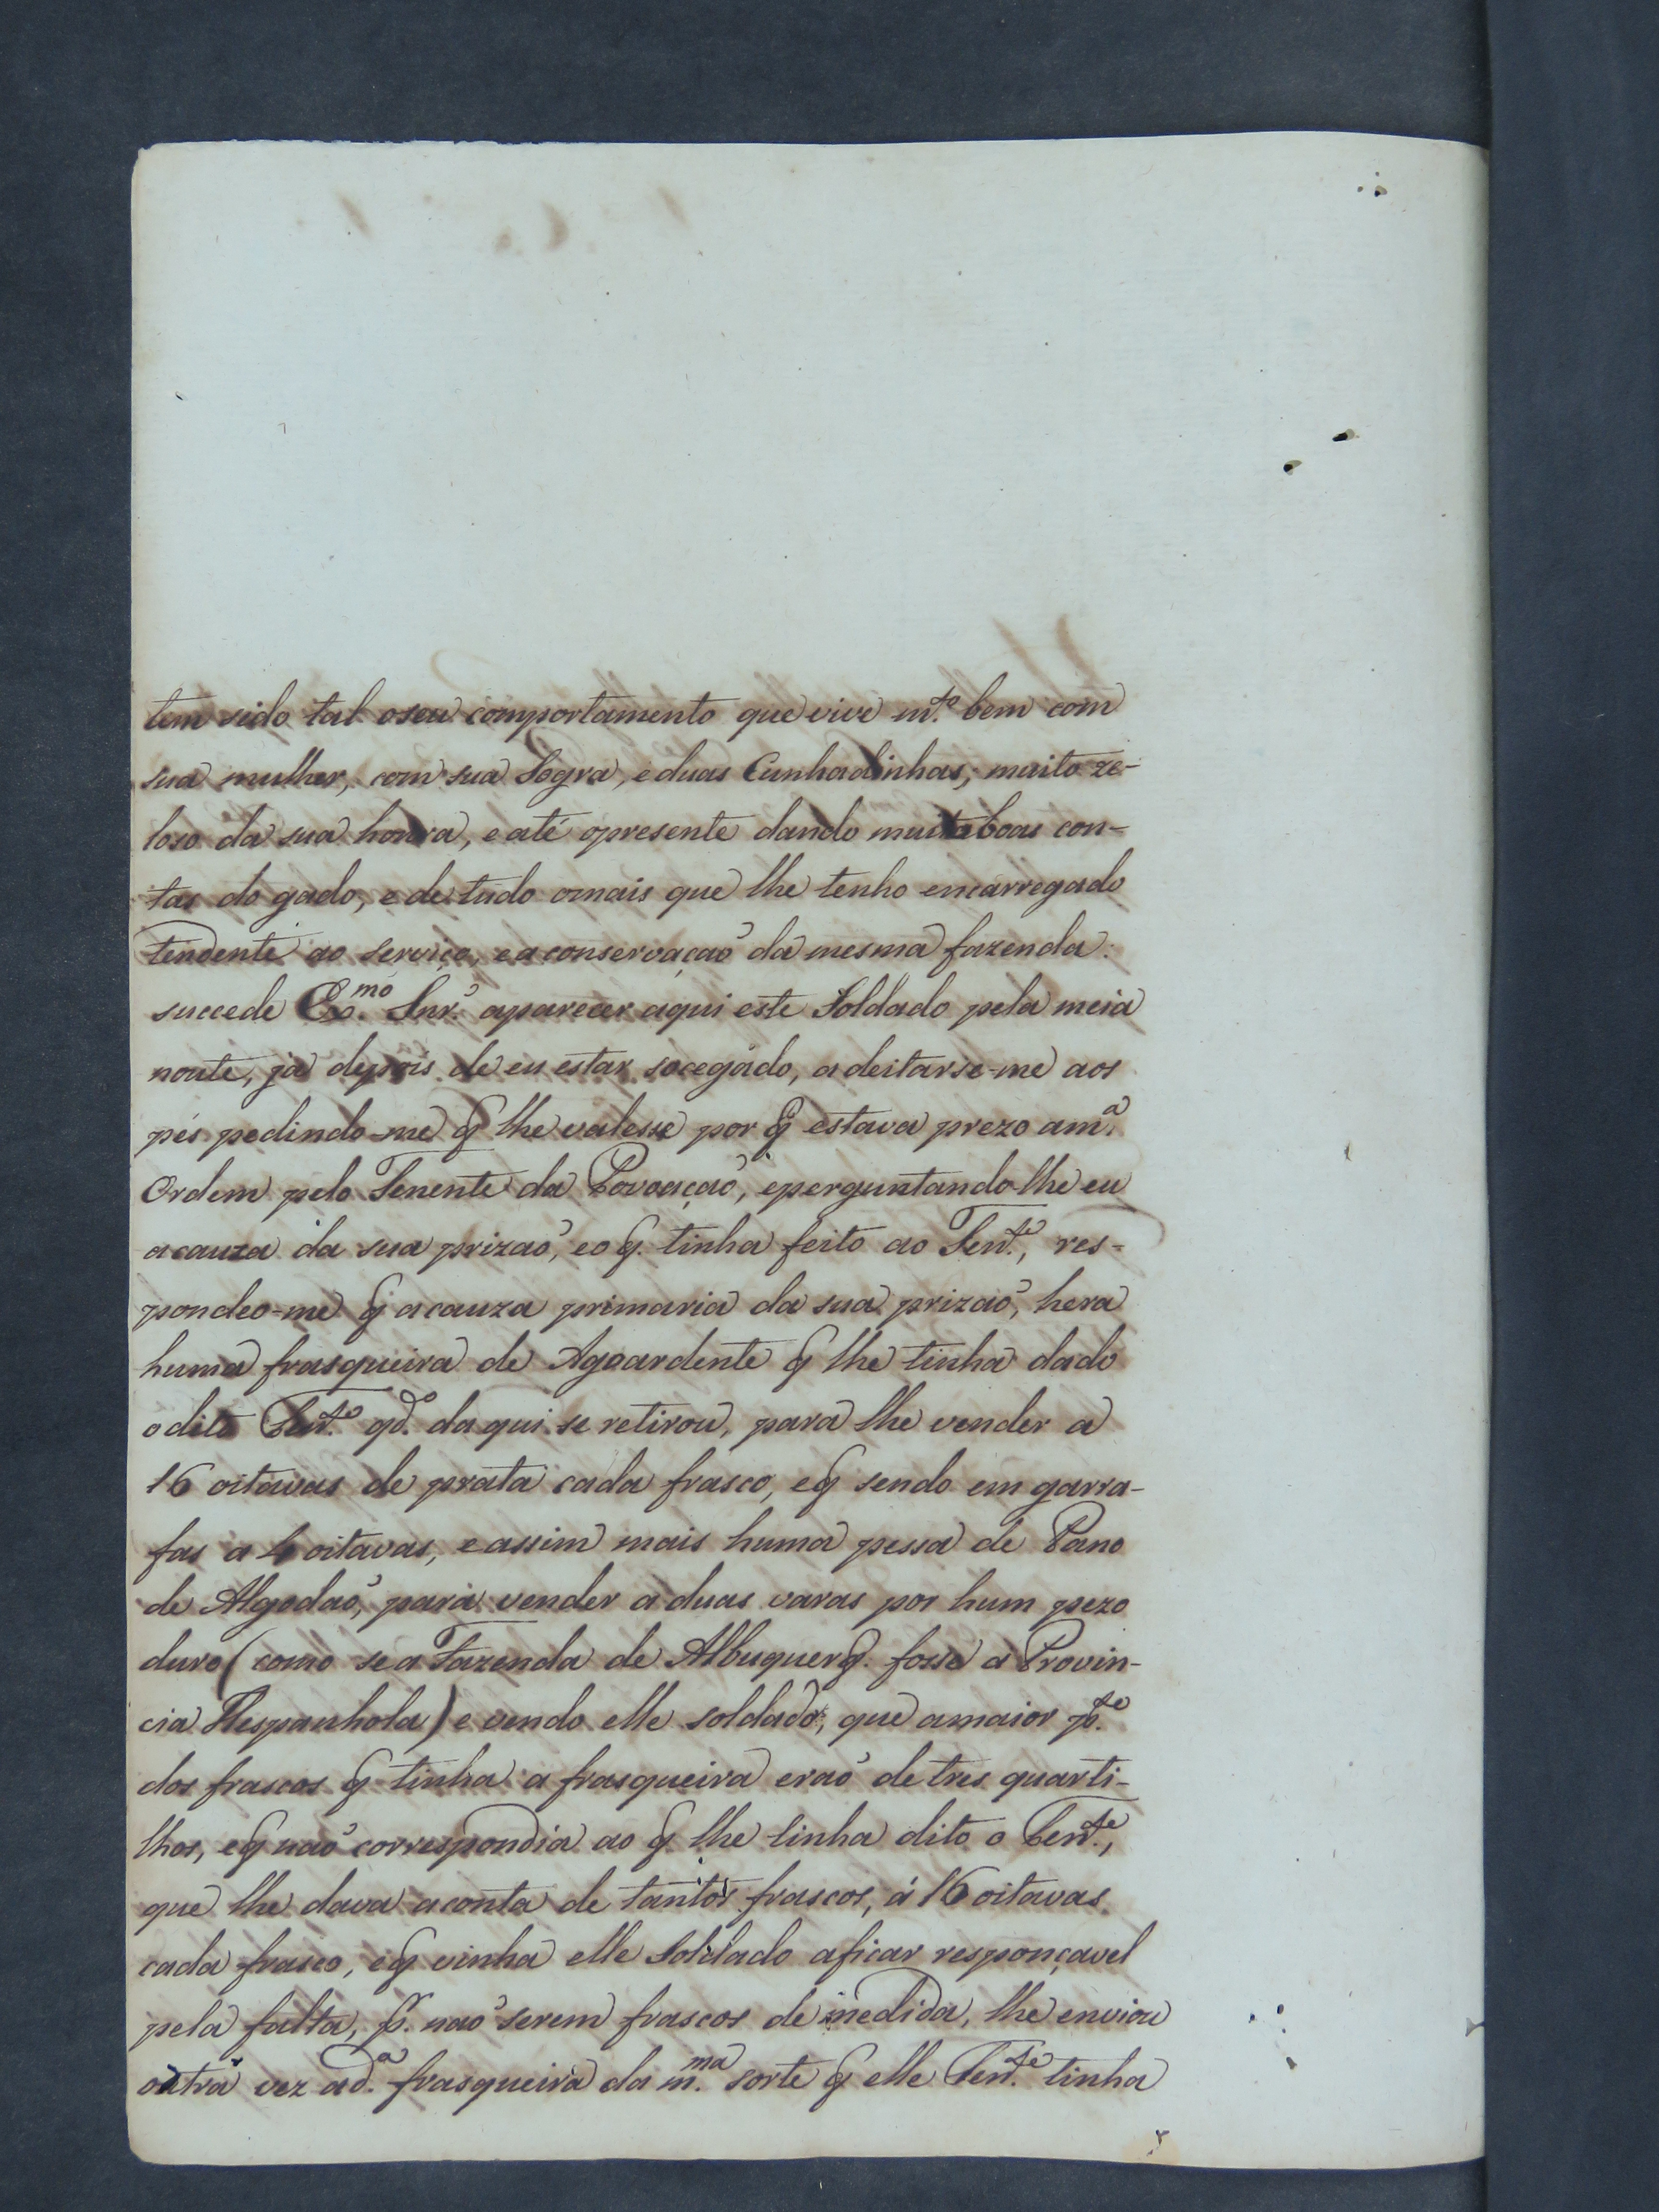 tem sido tal oseu comportamento que vive m.to bem com
sua mulher, com sua Sogra, e duas Cunhadinhas; muito ze-
loso da sua honra, e até opresente dando muito boas con-
tas do gado, e de tudo omais que lhe tenho encarregado
tendente ao serviço, ea conservaçaõ da mesma fazenda:
succede Ex.mo Snr.̃ aparecer aqui este Soldado pela meia
noute, já depois de eu estar socegado, a deitarse-me aos
pés pedindo-me q̃ lhe valesse por q̃ estava prezo am.a
Ordem pelo Tenente da Povoaçaõ, eperguntando-lhe eu
acauza da sua prizaõ, eo q̃. tinha feito ao Ten.te, res-
pondeo-me q̃ acauza primaria da sua prizaõ, hera
huma frasqueira de Agoardente q̃ lhe tinha dado
o dito Ten.te qd.o daqui se retirou, para lhe vender a
16 oitavas de prata cada frasco, eq̃ sendo em garra-
fas a 4 oitavas, e assim mais huma pessa de Pano
de Algodaõ, para vender a duas varas por hum pezo
duro (como se a Fazenda de Albuquerq̃. fosse a Provin-
cia Hespanhola) e vendo elle soldado, que amaior p.te
dos frascos q̃ tinha a frasqueira eraõ de tres quarti-
lhos, eq̃ naõ correspondia ao q̃. lhe tinha dito o Ten.te,
que lhe dava aconta de tantos frascos, á 16 oitavas
cada frasco, eq̃ vinha elle Soldado aficar responçavel
pela falta, p̃. naõ serem frascos de medida, lhe enviou
outra vez ad.a frasqueira da m.ma sorte q̃ elle Ten.te tinha